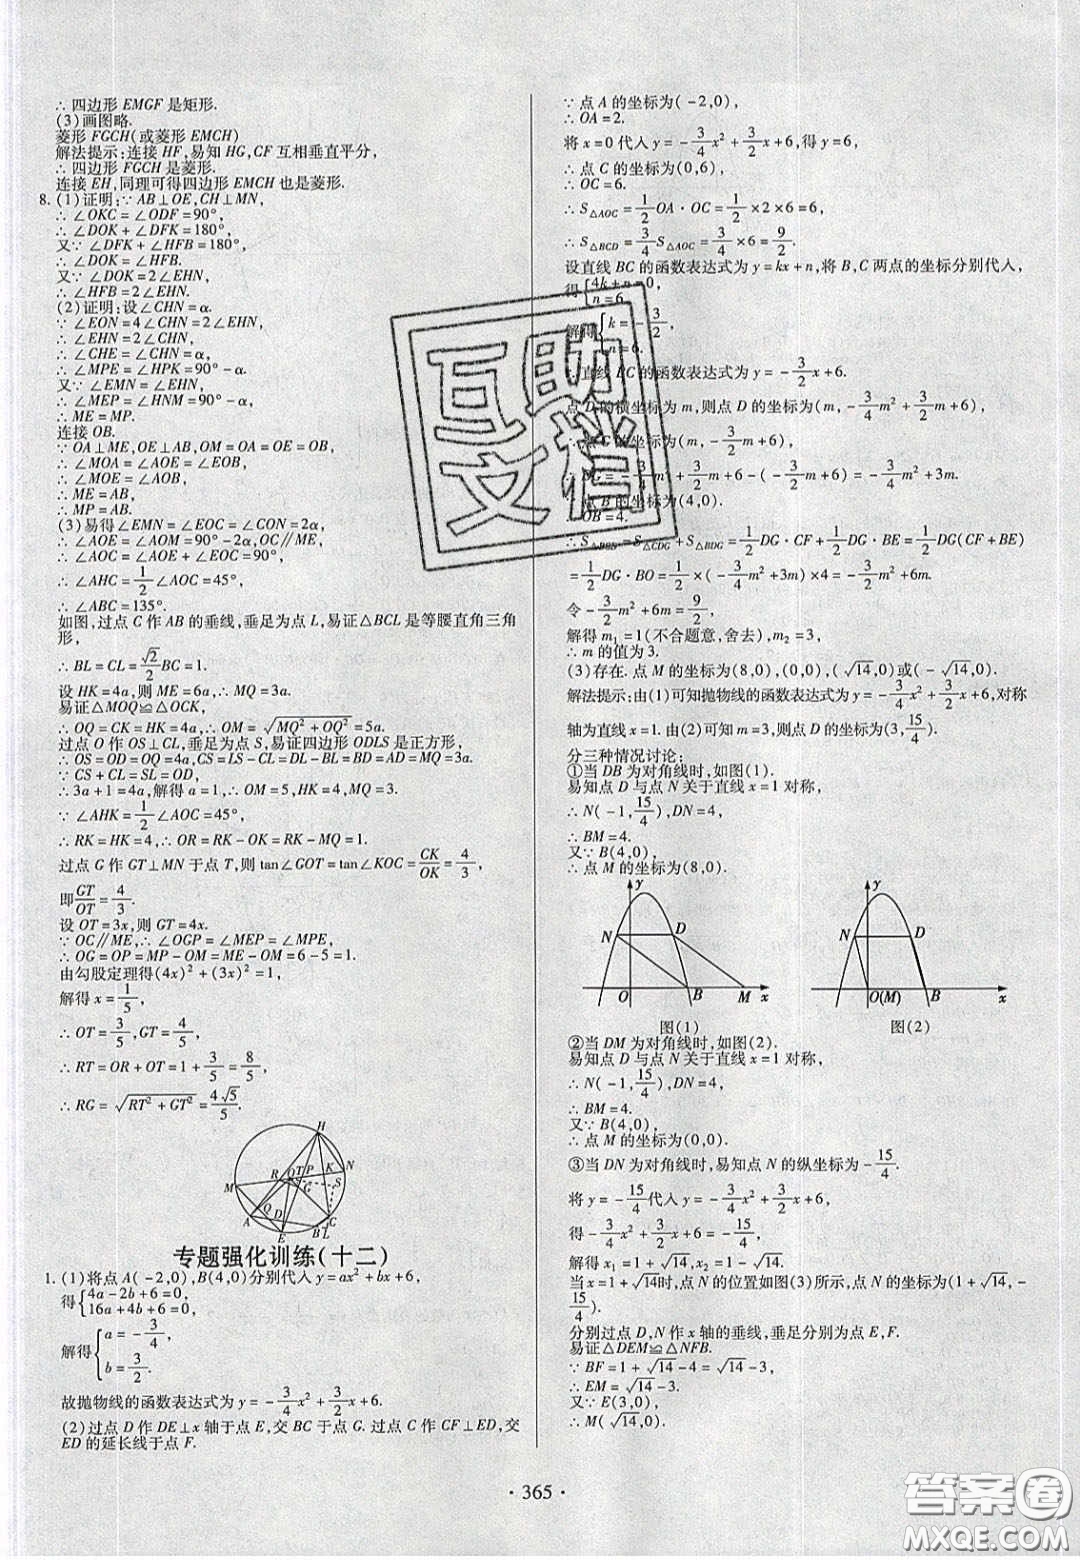 ∴ 四边形 EMGF 是矩形.
(3)画图略.
菱形 FGCH(或菱形 EMCH)
解法提示:连接 HF,易知 HG,CF 互相垂直平分,
∴ 四边形 FGCH 是菱形.
连接 EH,同理可得四边形 EMCH 也是菱形.
8. (1)证明:∵ AB⊥OE,CH⊥MN,
∴ ∠OKC=∠ODF=90°,
∴ ∠DOK+∠DFK=180°,
又∵ ∠DFK+∠HFB=180°,
∴ ∠DOK=∠HFB.
又∵ ∠DOK=2∠EHN,
∴ ∠HFB=2∠EHN.
(2)证明:设∠CHN=α.
∵ ∠EON=4∠CHN=2∠EHN,
∴ ∠EHN=2∠CHN,
∴ ∠CHE=∠CHN=α,
∴ ∠MPE=∠HPK=90°-α.
又∵ ∠EMN=∠EHN,
∴ ∠MEP=∠HNM=90°-α,
∴ ME=MP.
连接 OB.
∵ OA⊥ME,OE⊥AB,OM=OA=OE=OB,
∴ ∠MOA=∠AOE=∠EOB,
∴ ∠MOE=∠AOB,
∴ ME=AB,
∴ MP=AB.
(3)易得∠EMN=∠EOC=∠CON=2α,
∴ ∠AOE=∠AOM=90°-2α,OC∥ME,
∴ ∠AOC=∠AOE+∠EOC=90°,
∴ ∠AHC=1/2∠AOC=45°,
∴ ∠ABC=135°.
如图,过点 C 作 AB 的垂线,垂足为点 L,易证△BCL 是等腰直角三角
形,
∴ BL=CL=√2/2 BC=1.
设 HK=4a,则 ME=6a,∴ MQ=3a.
易证△MOQ≌△OCK,
∴ OQ=CK=HK=4a,∴ OM=√(MQ²+OQ²)=5a.
过点 O 作 OS⊥CL,垂足为点 S,易证四边形 ODLS 是正方形,
∴ OS=OD=OQ=4a,CS=LS-CL=SL-BL=DB=MQ=3a.
∵ CS+CL=SL=OD,
∴ 3a+1=4a,解得 a=1,∴ OM=5,HK=4,MQ=3.
∵ ∠AHK=1/2∠AOC=45°,
∴ RK=HK=4,∴ OR=RK-OK=RK-MQ=1.
过点 G 作 GT⊥MN 于点 T,则 tan∠GOT=tan∠KOC=CK/OK=4/3,
即GT/OT=4/3.
设 OT=3x,则 GT=4x.
∵ OC∥ME,∴ ∠OGP=∠MEP=∠MPE,
∴ OG=OP=MP-OM=ME-OM=6-5=1.
由勾股定理得(4x)²+(3x)²=1,
解得 x=1/5,
∴ OT=3/5,GT=4/5,
∴ RT=OR+OT=1+3/5=8/5,
∴ RG=√(RT²+GT²)=4√5/5.
H
R O T P K N
M G S
Q D
A C
E B L
专题强化训练(十二)
1. (1)将点 A(-2,0),B(4,0)分别代入 y=ax²+bx+6,
得{4a-2b+6=0,
16a+4b+6=0,
解得{a=-3/4,
b=3/2.
故抛物线的函数表达式为 y=-3/4x²+3/2x+6.
(2)过点 D 作 DE⊥x 轴于点 E,交 BC 于点 G. 过点 C 作 CF⊥ED,交
ED 的延长线于点 F.
∵ 点 A 的坐标为(-2,0),
∴ OA=2.
将 x=0 代入 y=-3/4x²+3/2x+6,得 y=6,
∴ 点 C 的坐标为(0,6),
∴ OC=6.
∴ S△AOC=1/2OA·OC=1/2×2×6=6,
∴ S△BCD=3/4S△AOC=3/4×6=9/2.
设直线 BC 的函数表达式为 y=kx+n,将 B,C 两点的坐标分别代入,
得{4k+n=0,
n=6,
解得{k=-3/2,
n=6.
∴ 直线 BC 的函数表达式为 y=-3/2x+6.
点 D 的横坐标为 m,则点 D 的坐标为(m,-3/4m²+3/2m+6),
∴ 点 G 的坐标为(m,-3/2m+6),
3/4m²+3/2m+6-(-3/2m+6)=-3/4m²+3m.
点 B 的坐标为(4,0),
∴ OB=4.
∴ S△BCD=S△CDG+S△BDG=1/2DG·CF+1/2DG·BE=1/2DG(CF+BE)
=1/2DG·BO=1/2×(-3/4m²+3m)×4=-3/2m²+6m.
令-3/2m²+6m=9/2,
解得 m₁=1(不合题意,舍去),m₂=3,
∴ m 的值为 3.
(3)存在. 点 M 的坐标为(8,0),(0,0),(√14,0)或(-√14,0).
解法提示:由(1)可知抛物线的函数表达式为 y=-3/4x²+3/2x+6,对称
轴为直线 x=1. 由(2)可知 m=3,则点 D 的坐标为(3,15/4).
分三种情况讨论:
①当 DB 为对角线时,如图(1).
易知点 D 与点 N 关于直线 x=1 对称,
∴ N(-1,15/4),DN=4,
∴ BM=4.
又∵ B(4,0),
∴ 点 M 的坐标为(8,0).
y N D O B M x
图(1)
y N D O(M) B x
图(2)
②当 DM 为对角线时,如图(2).
易知点 D 与点 N 关于直线 x=1 对称,
∴ N(-1,15/4),DN=4,
∴ BM=4.
又∵ B(4,0),
∴ 点 M 的坐标为(0,0).
③当 DN 为对角线时,易知点 N 的纵坐标为-15/4.
将 y=-15/4代入 y=-3/4x²+3/2x+6,
得-15/4=-3/4x²+3/2x+6,
解得 x=1±√14.
当 x=1+√14时,点 N 的位置如图(3)所示,点 N 的坐标为(1+√14,-
15/4).
分别过点 D,N 作 x 轴的垂线,垂足分别为点 E,F.
易证△DEM≌△NFB.
∵ BF=1+√14-4=√14-3,
∴ EM=√14-3.
又∵ E(3,0),
∴ M(√14,0)
· 365 ·
互助
文档
答案圈
MXQE.COM